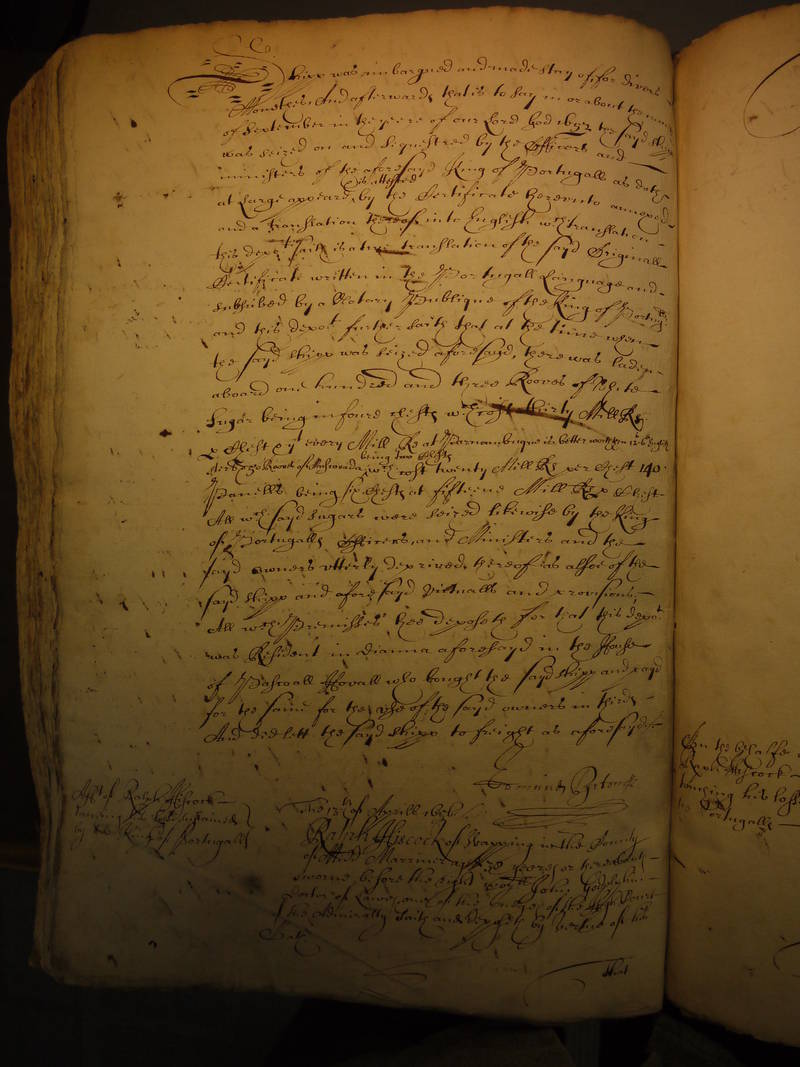 shipp was imbargued and made stay of for divers
Monethes And afterwards that is to say in or about the
of September in the yeere of our Lord God the sayd shipp
was seized on and sequestred by the Officers and
ministers of the aforesayd King of Portugall as doth
at large appeare is attested by the Certificate hereunto annexed
and a translation thereof into English, wch translation
this depot saith is a true translation of the sayd Originall
Certificate written in the Portugall Language and
subscribed by a Notary Publique of the King of Portugall
and this depot further saith that at the time when
the sayd shipp was seized aforesayd, there was laden
aboard one hundred and three Rooves of White
Sugar being in foure chests wch cost thirty Mill Rs
p Chest & yt every Mill Re at Parnambuque is better worth then
Rooves of Moscovada being two chests wch cost twenty Mill Rs per Chest 140
Panells being six chests at fifteene Mill Rs p Chest
All wch sayd sugars were seized likewise by the King
of Portugalls Officers, and Ministers and the
sayd owners utterly deprived thereof as alsoe of the
sayd shipp and afore sayd victualls and provisions,
All wch Premisses hee deposeth for that this depot
was Resident in Vianna aforesayd in the House
of Pascoall who bought the sayd shipp and payd
for the same for the use of the sayd owners in thirds
And did lett the sayd shipp to freight as aforesayd
Afft of Ralph Hiscock
touching his losse sustained
by the King of Portugall
The of Aprill
Ralph Hiscock of Wapping in the County
of Midd Marriner aged yeares or thereabouts
sworne before the right worll John Godolphin
Doctor of Lawes one of the Judges of the high Court
of the Admiralty saith and deposeth by vertue of his
oath
that
On the behalfe
Hiscock
touching his losse
Portugall